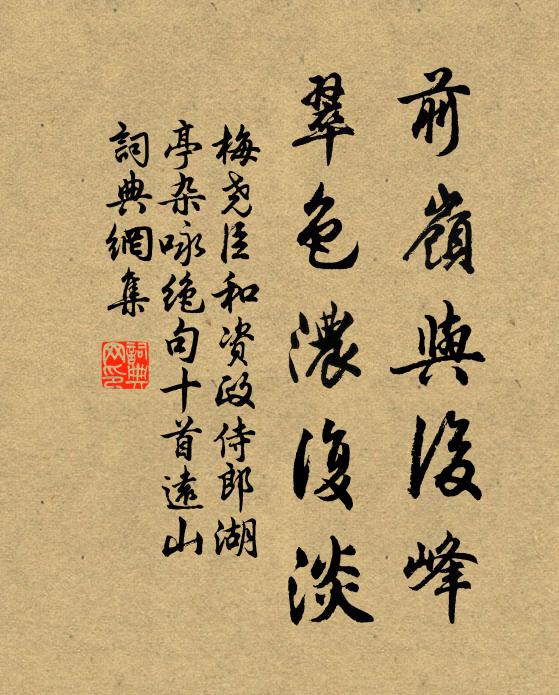 前嶺與後峰
翠色濃復淡
梅尧臣和资政侍郎湖
亭杂咏绝句十首遠山
詞典網集
詞典
网印